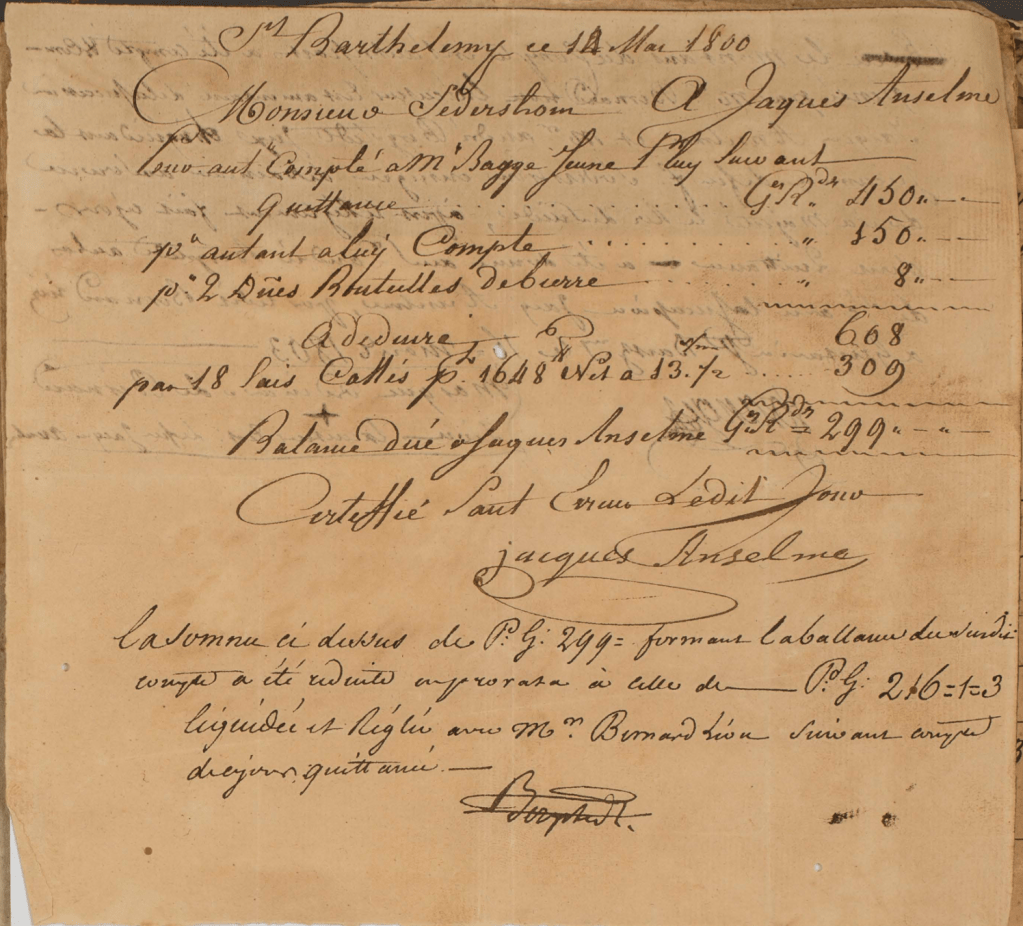 St Barthelemy ce 12 Mai 1800
Monsieur Séderstrom A Jaques Anselme
Pour autt Compté a Mr Bagge Jeune Pr luy Suivant
Quittance GsRdr 450 " — —
pr autant a luy Compté . . . . . . . . . . . " 150 " — —
pr 2 Dñes Bouteilles de bierre . . . . . . . " 8 " — —
A deduire 608
par 18 Sais Caffés ps. 1648 lb Net a 13.½ . . . . . 309
Balance düe a Jaques Anselme GsRdr = 299 " — " —
Certeffié Sauf Erreur Ledit Jour
jacques Anselme
la somme ci dessus de P.G: 299= formant la ballance du susdit
compte a été réduite au prorata à celle de — P.G: 216=1=3
liquidée et Réglée avec Mr. Bernard suivant compte
de ce jour, quittancé. —